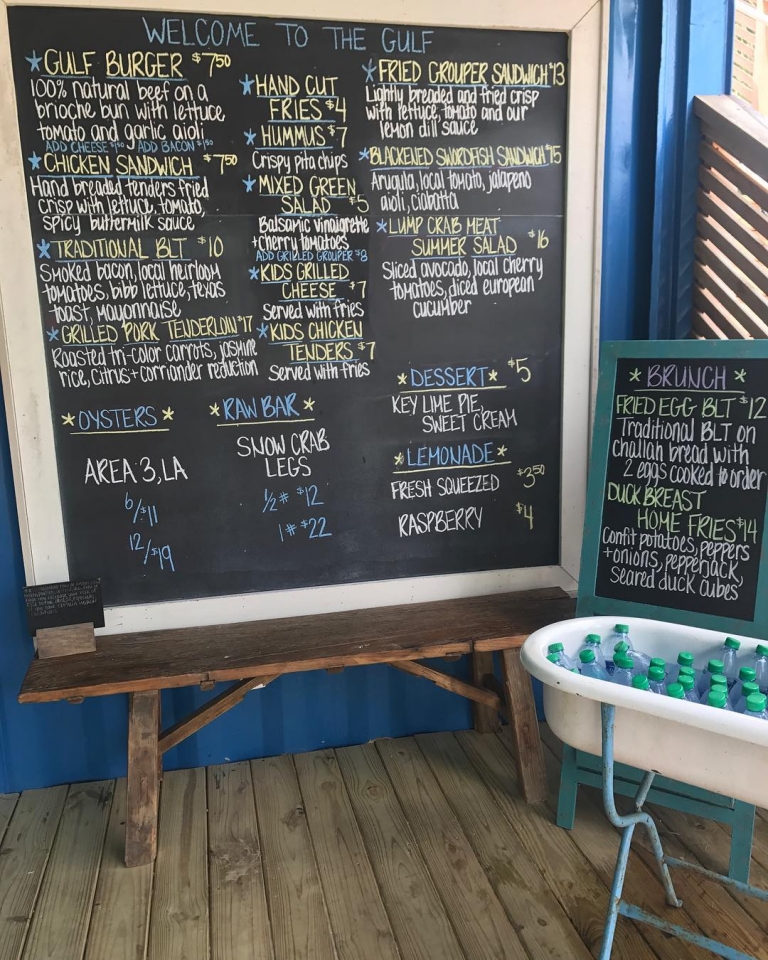 WELCOME TO THE GULF
GULF BURGER $7.50
100% natural beef on a
brioche bun with lettuce,
tomato and garlic aioli
ADD CHEESE ADD BACON
CHICKEN SANDWICH $7.50
Hand breaded tenders fried
crisp with lettuce, tomato,
spicy buttermilk sauce
TRADITIONAL BLT $10
Smoked bacon, local heirloom
tomatoes, bibb lettuce, texas
toast, mayonnaise
GRILLED PORK TENDERLOIN $17
Roasted tri-color carrots, jasmine
rice, citrus + corriander reduction
HAND CUT
FRIES $4
HUMMUS $7
Crispy pita chips
MIXED GREEN
SALAD $5
Balsamic vinaigrette
+cherry tomatoes
ADD GRILLED GROUPER $8
KIDS GRILLED
CHEESE $7
Served with fries
KIDS CHICKEN
TENDERS $7
Served with fries
FRIED GROUPER SANDWICH $13
Lightly breaded and fried crisp
with lettuce, tomato and our
lemon dill sauce
BLACKENED SWORDFISH SANDWICH $15
Arugula, local tomato, jalapeno
aioli, ciabatta
LUMP CRAB MEAT
SUMMER SALAD $16
Sliced avocado, local cherry
tomatoes, diced european
cucumber
OYSTERS
AREA 3, LA
6/$11
12/$19
RAW BAR
SNOW CRAB
LEGS
1/2# $12
1# $22
DESSERT $5
KEY LIME PIE,
SWEET CREAM
LEMONADE
FRESH SQUEEZED $3.50
RASPBERRY $4
BRUNCH
FRIED EGG BLT $12
Traditional BLT on
challah bread with
2 eggs cooked to order
DUCK BREAST
HOME FRIES $14
Confit potatoes, peppers
+onions, pepperjack,
seared duck cubes